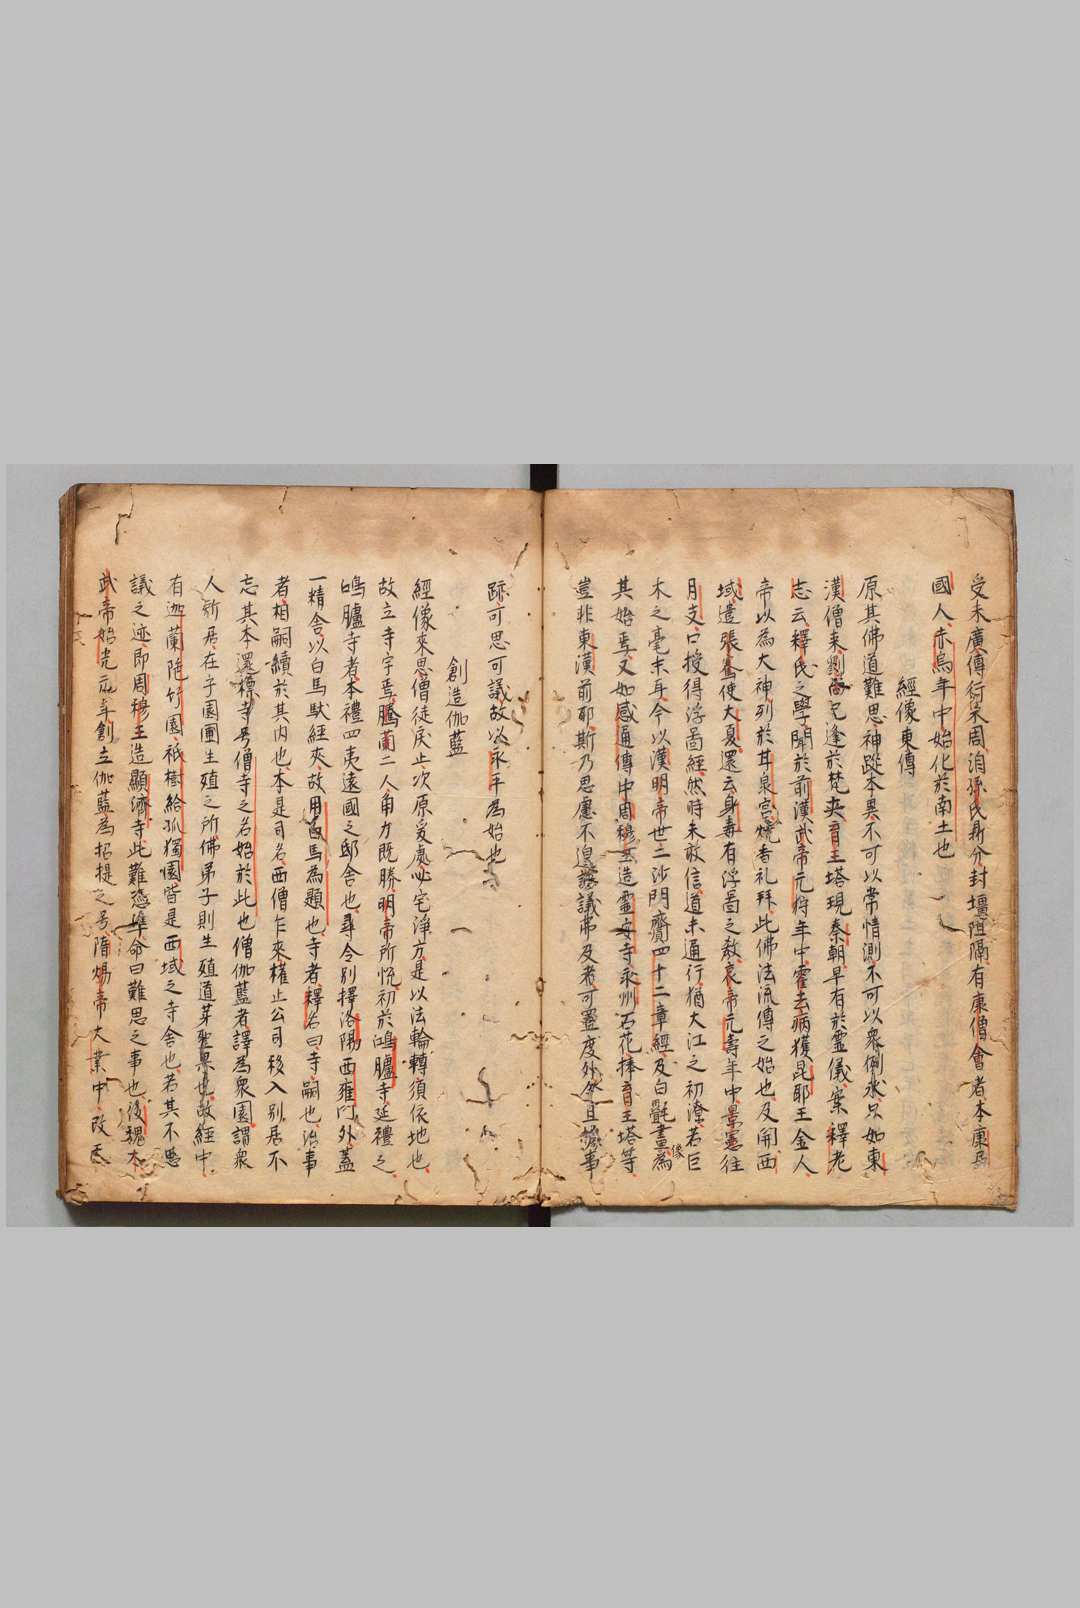 受未廣傳行未周洎孫氏鼎分封壃阻隔有康僧會者本康居
國人赤烏年中始化於南土也
經像東傳
原其佛道難思神蹤本異不可以常情測不可以衆例求只如東
漢僧來劉尚已逢於梵夾育王塔現秦朝早有於靈儀案釋老
志云釋氏之學聞於前漢武帝元狩年中霍去病獲昆耶王金人
帝以為大神列於甘泉宮燒香礼拜此佛法流傳之始也及開西
域遣張騫使大夏還云身毒有浮啚之教哀帝元壽年中景憲往
月支口授得浮啚經然時未敢信道未通行猶大江之初潦若巨
木之毫末耳今以漢明帝世二沙門齎四十二章經及白㲲畫為
像
其始焉又如感通傳中周穆王造靈安寺永州石花捧育王塔等
豈非東漢前耶斯乃思慮不遑議弗及者可置度外矣且據事
跡可思可議故以永平為始也
創造伽藍
經像來思僧徒戾止次原爰處必宅淨方是以法輪轉須依地也
故立寺宇焉騰蘭二人角力既勝明帝所悅初於鴻臚寺延禮之
鴻臚寺者本禮四夷遠國之邸舍也尋令別擇洛陽西雍門外蓋
一精舍以白馬馱經夾故用白馬為題也寺者釋名曰寺嗣也治事
者相嗣續於其內也本是司名西僧乍來權止公司移入別居不
忘其本還標寺号僧寺之名始於此也僧伽藍者譯為衆園謂衆
人所居在乎園圃生殖之所佛弟子則生殖道芽聖果也故經中
有迦蘭陁竹園祇樹給孤獨園皆是西域之寺舍也若其不思
議之迹即周穆王造顯濟寺此難憑準命曰難思之事也後魏太
武帝始光元年創立伽藍為招提之号隋煬帝大業中改天